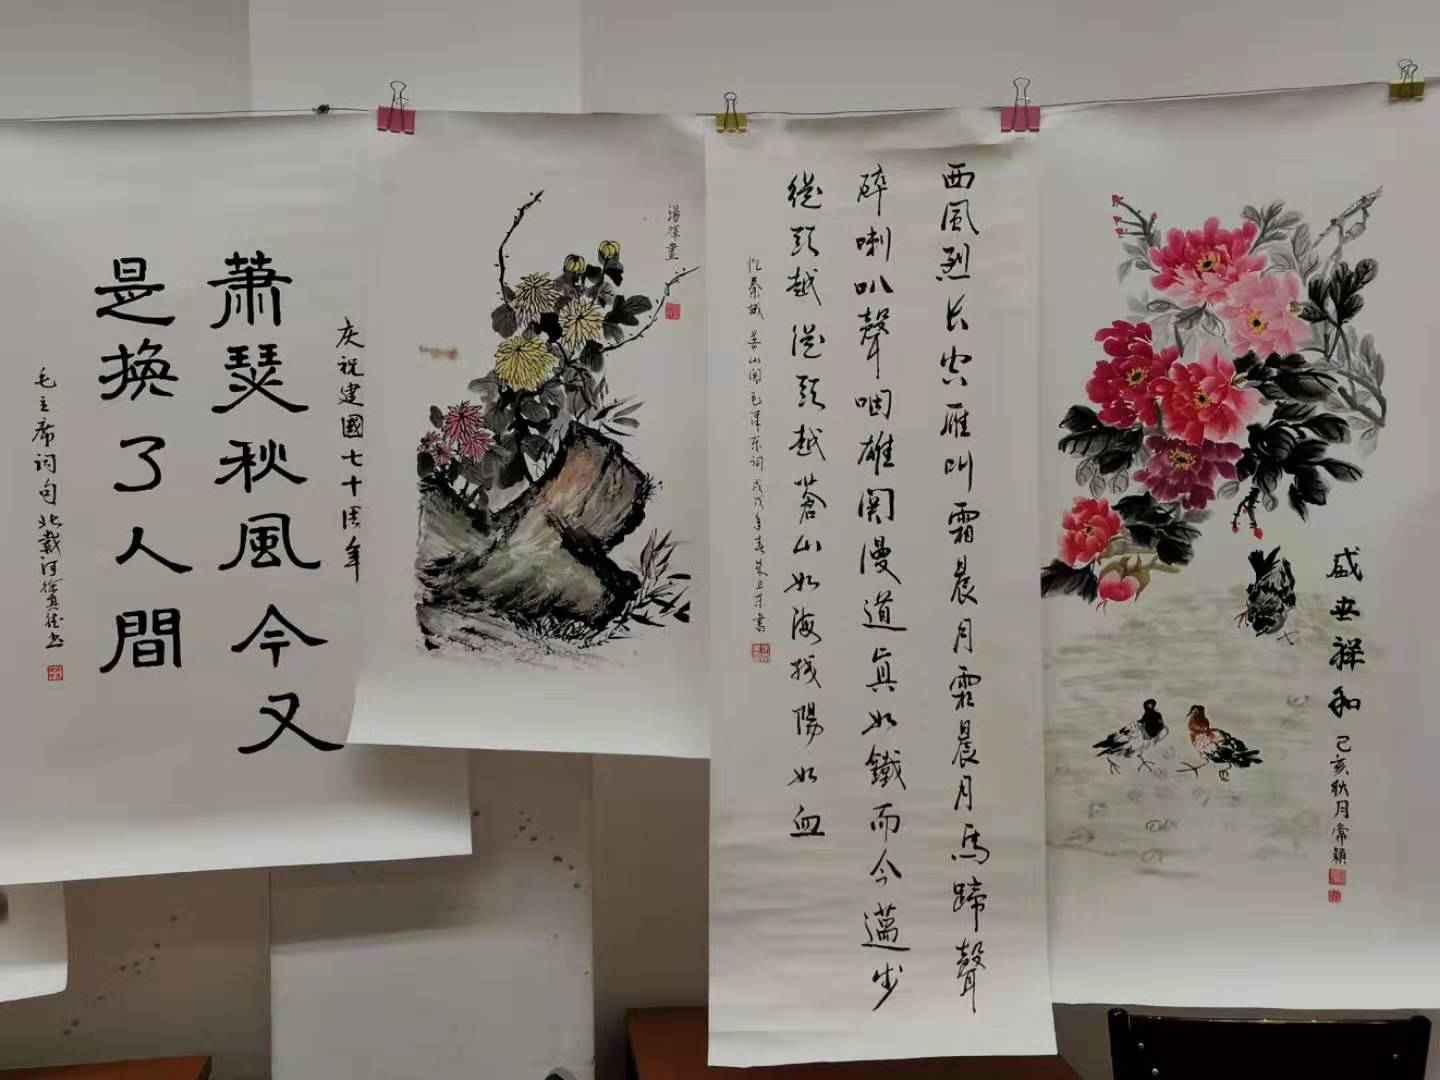 庆祝建國七十周年
蕭瑟秋風今又
是換了人間
毛主席词句北戴河徐其德书
湯輝畫
西風烈长空雁叫霜晨月霜晨月馬蹄聲
碎喇叭聲咽雄関漫道真如鐵而今邁步
從头越從头越蒼山如海残陽如血
忆秦娥 娄山関毛泽东词戊戌年春
盛世祥和
己亥秋月常颖